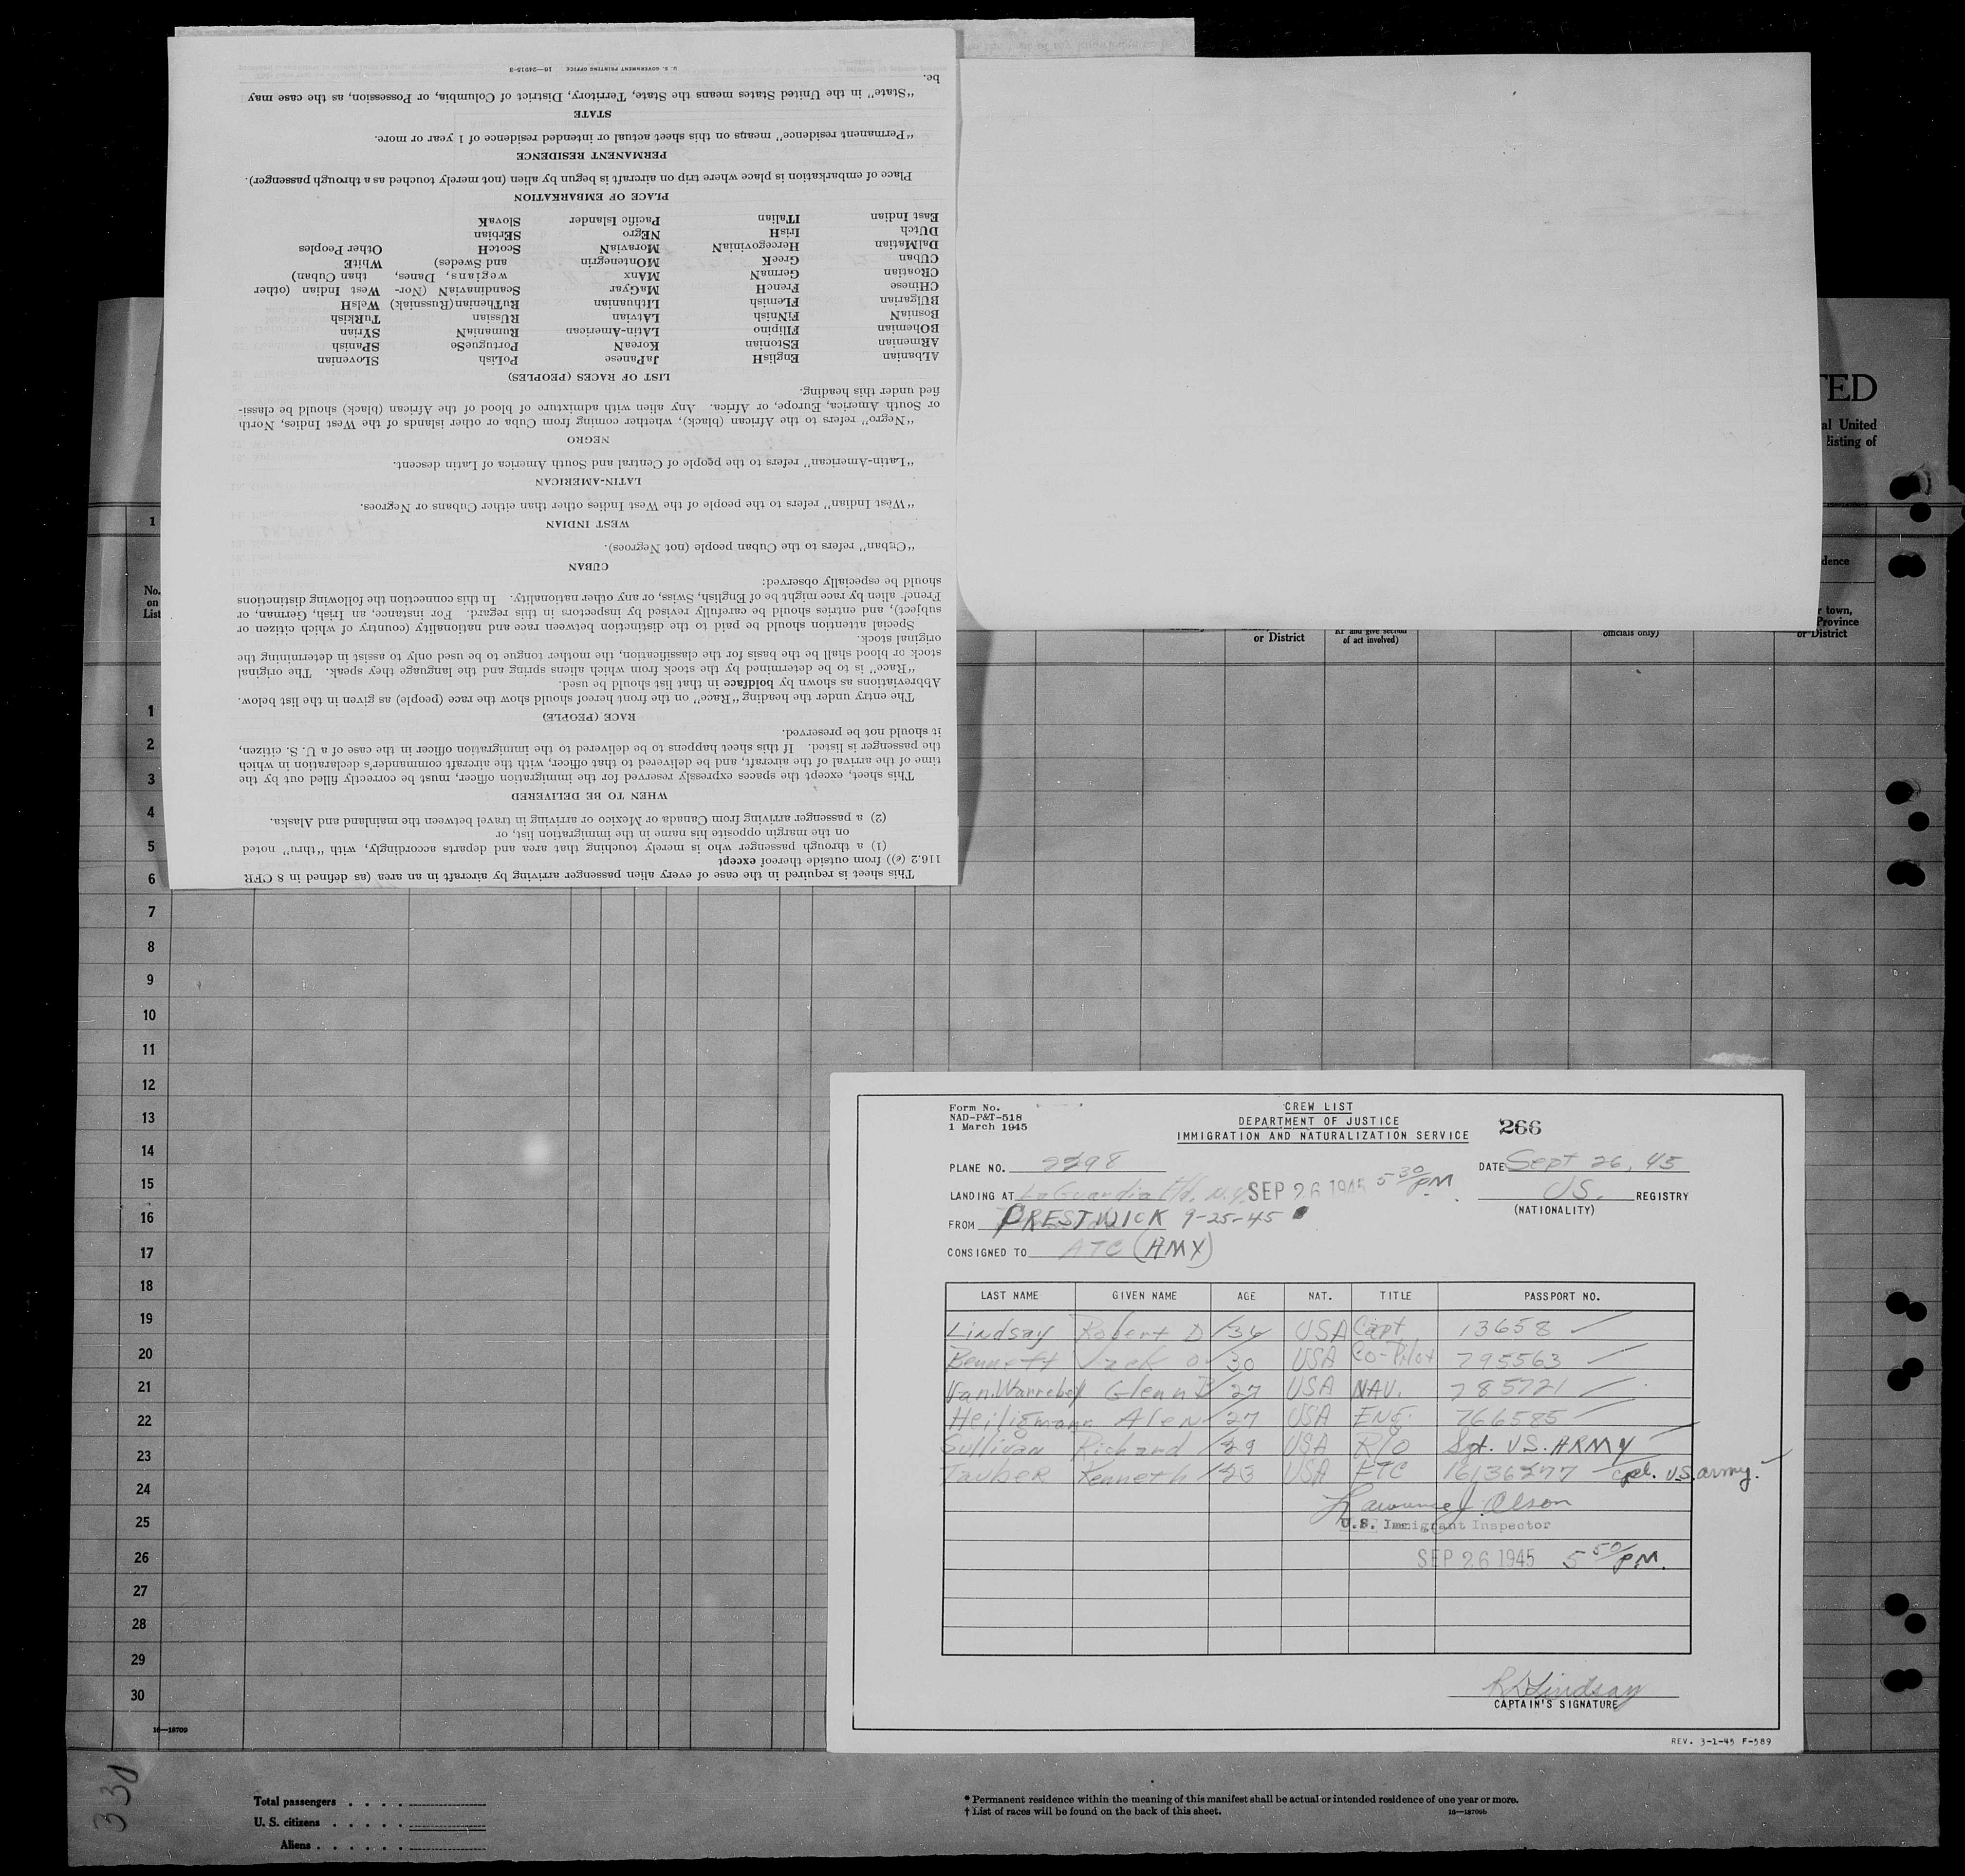 This sheet is required in the case of every alien passenger arriving by aircraft in an area (as defined in 8 CFR
116.2 (e)) from outside thereof except
(1) a through passenger who is merely touching that area and departs accordingly, with "thru" noted
on the margin opposite his name in the immigration list, or
(2) a passenger arriving from Canada or Mexico or arriving in travel between the mainland and Alaska.
WHEN TO BE DELIVERED
This sheet, except the spaces expressly reserved for the immigration officer, must be correctly filled out by the
time of the arrival of the aircraft, and be delivered to that officer, with the aircraft commander's declaration in which
the passenger is listed. If this sheet happens to be delivered to the immigration officer in the case of a U. S. citizen,
it should not be preserved.
RACE (PEOPLE)
The entry under the heading "Race" on the front hereof should show the race (people) as given in the list below.
Abbreviations as shown by boldface in that list should be used.
"Race" is to be determined by the stock from which aliens spring and the language they speak. The original
stock or blood shall be the basis for the classification, the mother tongue to be used only to assist in determining the
original stock.
Special attention should be paid to the distinction between race and nationality (country of which citizen or
subject), and entries should be carefully revised by inspectors in this regard. For instance, an Irish, German, or
French alien by race might be of English, Swiss, or any other nationality. In this connection the following distinctions
should be especially observed:
CUBAN
"Cuban" refers to the Cuban people (not Negroes).
WEST INDIAN
"West Indian" refers to the people of the West Indies other than either Cubans or Negroes.
LATIN-AMERICAN
"Latin-American" refers to the people of Central and South America of Latin descent.
NEGRO
"Negro" refers to the African (black), whether coming from Cuba or other islands of the West Indies, North
or South America, Europe, or Africa. Any alien with admixture of blood of the African (black) should be classi-
fied under this heading.
LIST OF RACES (PEOPLES)
ALbanian EnglisH JaPanese PoLish SLOvenian
ARmenian EStonian KoreaN PortugueSe SPanish
BOhemian FIlipino LAtin-American RumaniaN SYrian
BosniaN FiNnish LAtvian RUssian TuRKish
BUlgarian FLemish LIthuanian RuThenian (Russniak) WelsH
CHinese FrencH MaGyar ScandinaviaN (Nor- West Indian (other
CRoatian GermaN MAnx wegians, Danes, than Cuban)
CUban GreeK MOntenegrin and Swedes) WhitE
DalMatian HercegoviniaN MoraviaN ScotcH Other Peoples
DUtch IrisH NEgro SErbian
East Indian ITalian Pacific Islander SlovaK
PLACE OF EMBARKATION
Place of embarkation is place where trip on aircraft is begun by alien (not merely touched as a through passenger).
PERMANENT RESIDENCE
"Permanent residence" means on this sheet actual or intended residence of 1 year or more.
STATE
"State" in the United States means the State, Territory, District of Columbia, or Possession, as the case may
be.
U. S. GOVERNMENT PRINTING OFFICE 16—24915-2
TED
al United
listing of
1
dence
No.
on
List
or District
RP and give section
of act involved)
officials only)
r town,
Province
or District
1
2
3
4
5
6
7
8
9
10
11
12
13
14
15
16
17
18
19
20
21
22
23
24
25
26
27
28
29
30
16—18709
330
Form No.
NAD-P&T-518
1 March 1945
CREW LIST
DEPARTMENT OF JUSTICE
IMMIGRATION AND NATURALIZATION SERVICE
266
PLANE NO. 2298
DATE Sept 26, 45
LANDING AT LaGuardia Fld. N.Y. SEP 26 1945 5 30/PM
US. REGISTRY
(NATIONALITY)
FROM PRESTWICK 9-25-45
CONSIGNED TO ATC (AMY)
LAST NAME GIVEN NAME AGE NAT. TITLE PASSPORT NO.
Lindsay Robert D 34 USA Capt 13658
Bennett Jack O 30 USA Co-Pilot 795563
Glenn 27 USA NAV. 785721
Heiligmann Alen 27 USA ENG. 766585
Sullivan Richard 29 USA R/O Sgt. US. ARMY
Tauber Kenneth 23 USA FTC 16136277 Cpl. U.S. army.
Lawrence J. Olson
U.S. Immigrant Inspector
SEP 26 1945 5 50/PM.
R D Lindsay
CAPTAIN'S SIGNATURE
REV. 3-1-45 F-589
Total passengers
U. S. citizens
Aliens
* Permanent residence within the meaning of this manifest shall be actual or intended residence of one year or more.
† List of races will be found on the back of this sheet.
16—18709b